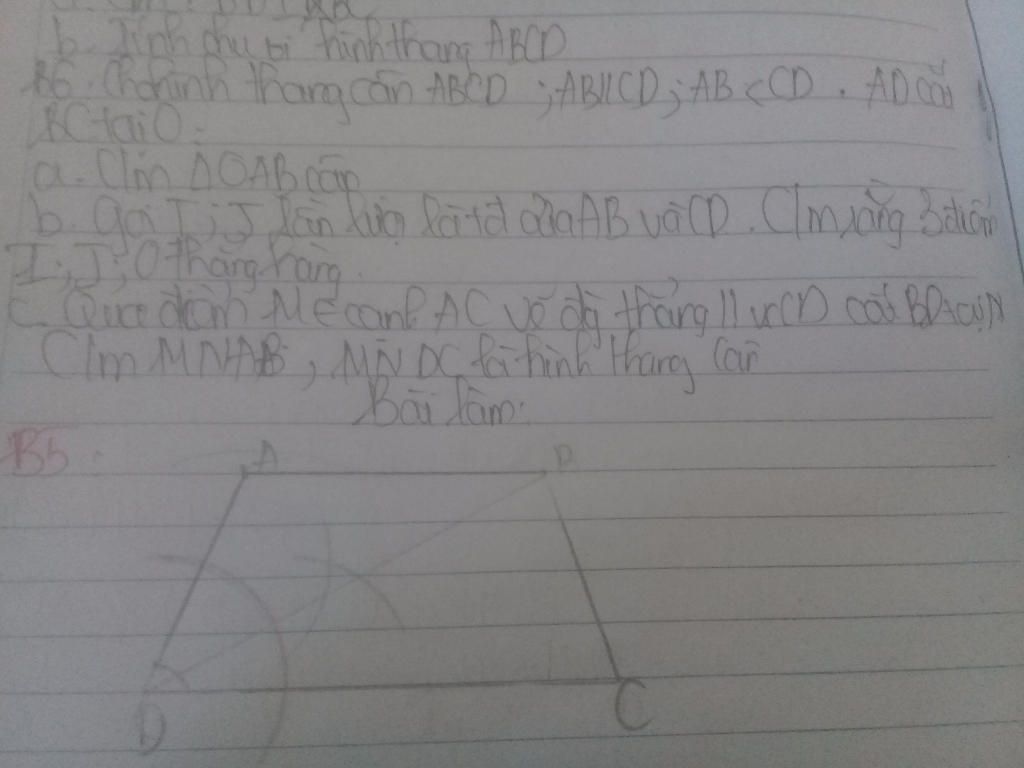 b. Tính chu vi hình thang ABCD
B6. Cho hình thang cân ABCD ; AB//CD ; AB < CD . AD cắt
BC tại O.
a. C/m ΔOAB cân
b. gọi I ; J lần lượt là tđ của AB và CD . C/m rằng 3 điểm
I ; J ; O thẳng hàng.
c. Qua điểm M ∈ cạnh AC vẽ đg thẳng // vs CD cắt BD tại N
C/m MNAB , MNDC là hình thang cân
Bài làm:
B5.
A B
D C